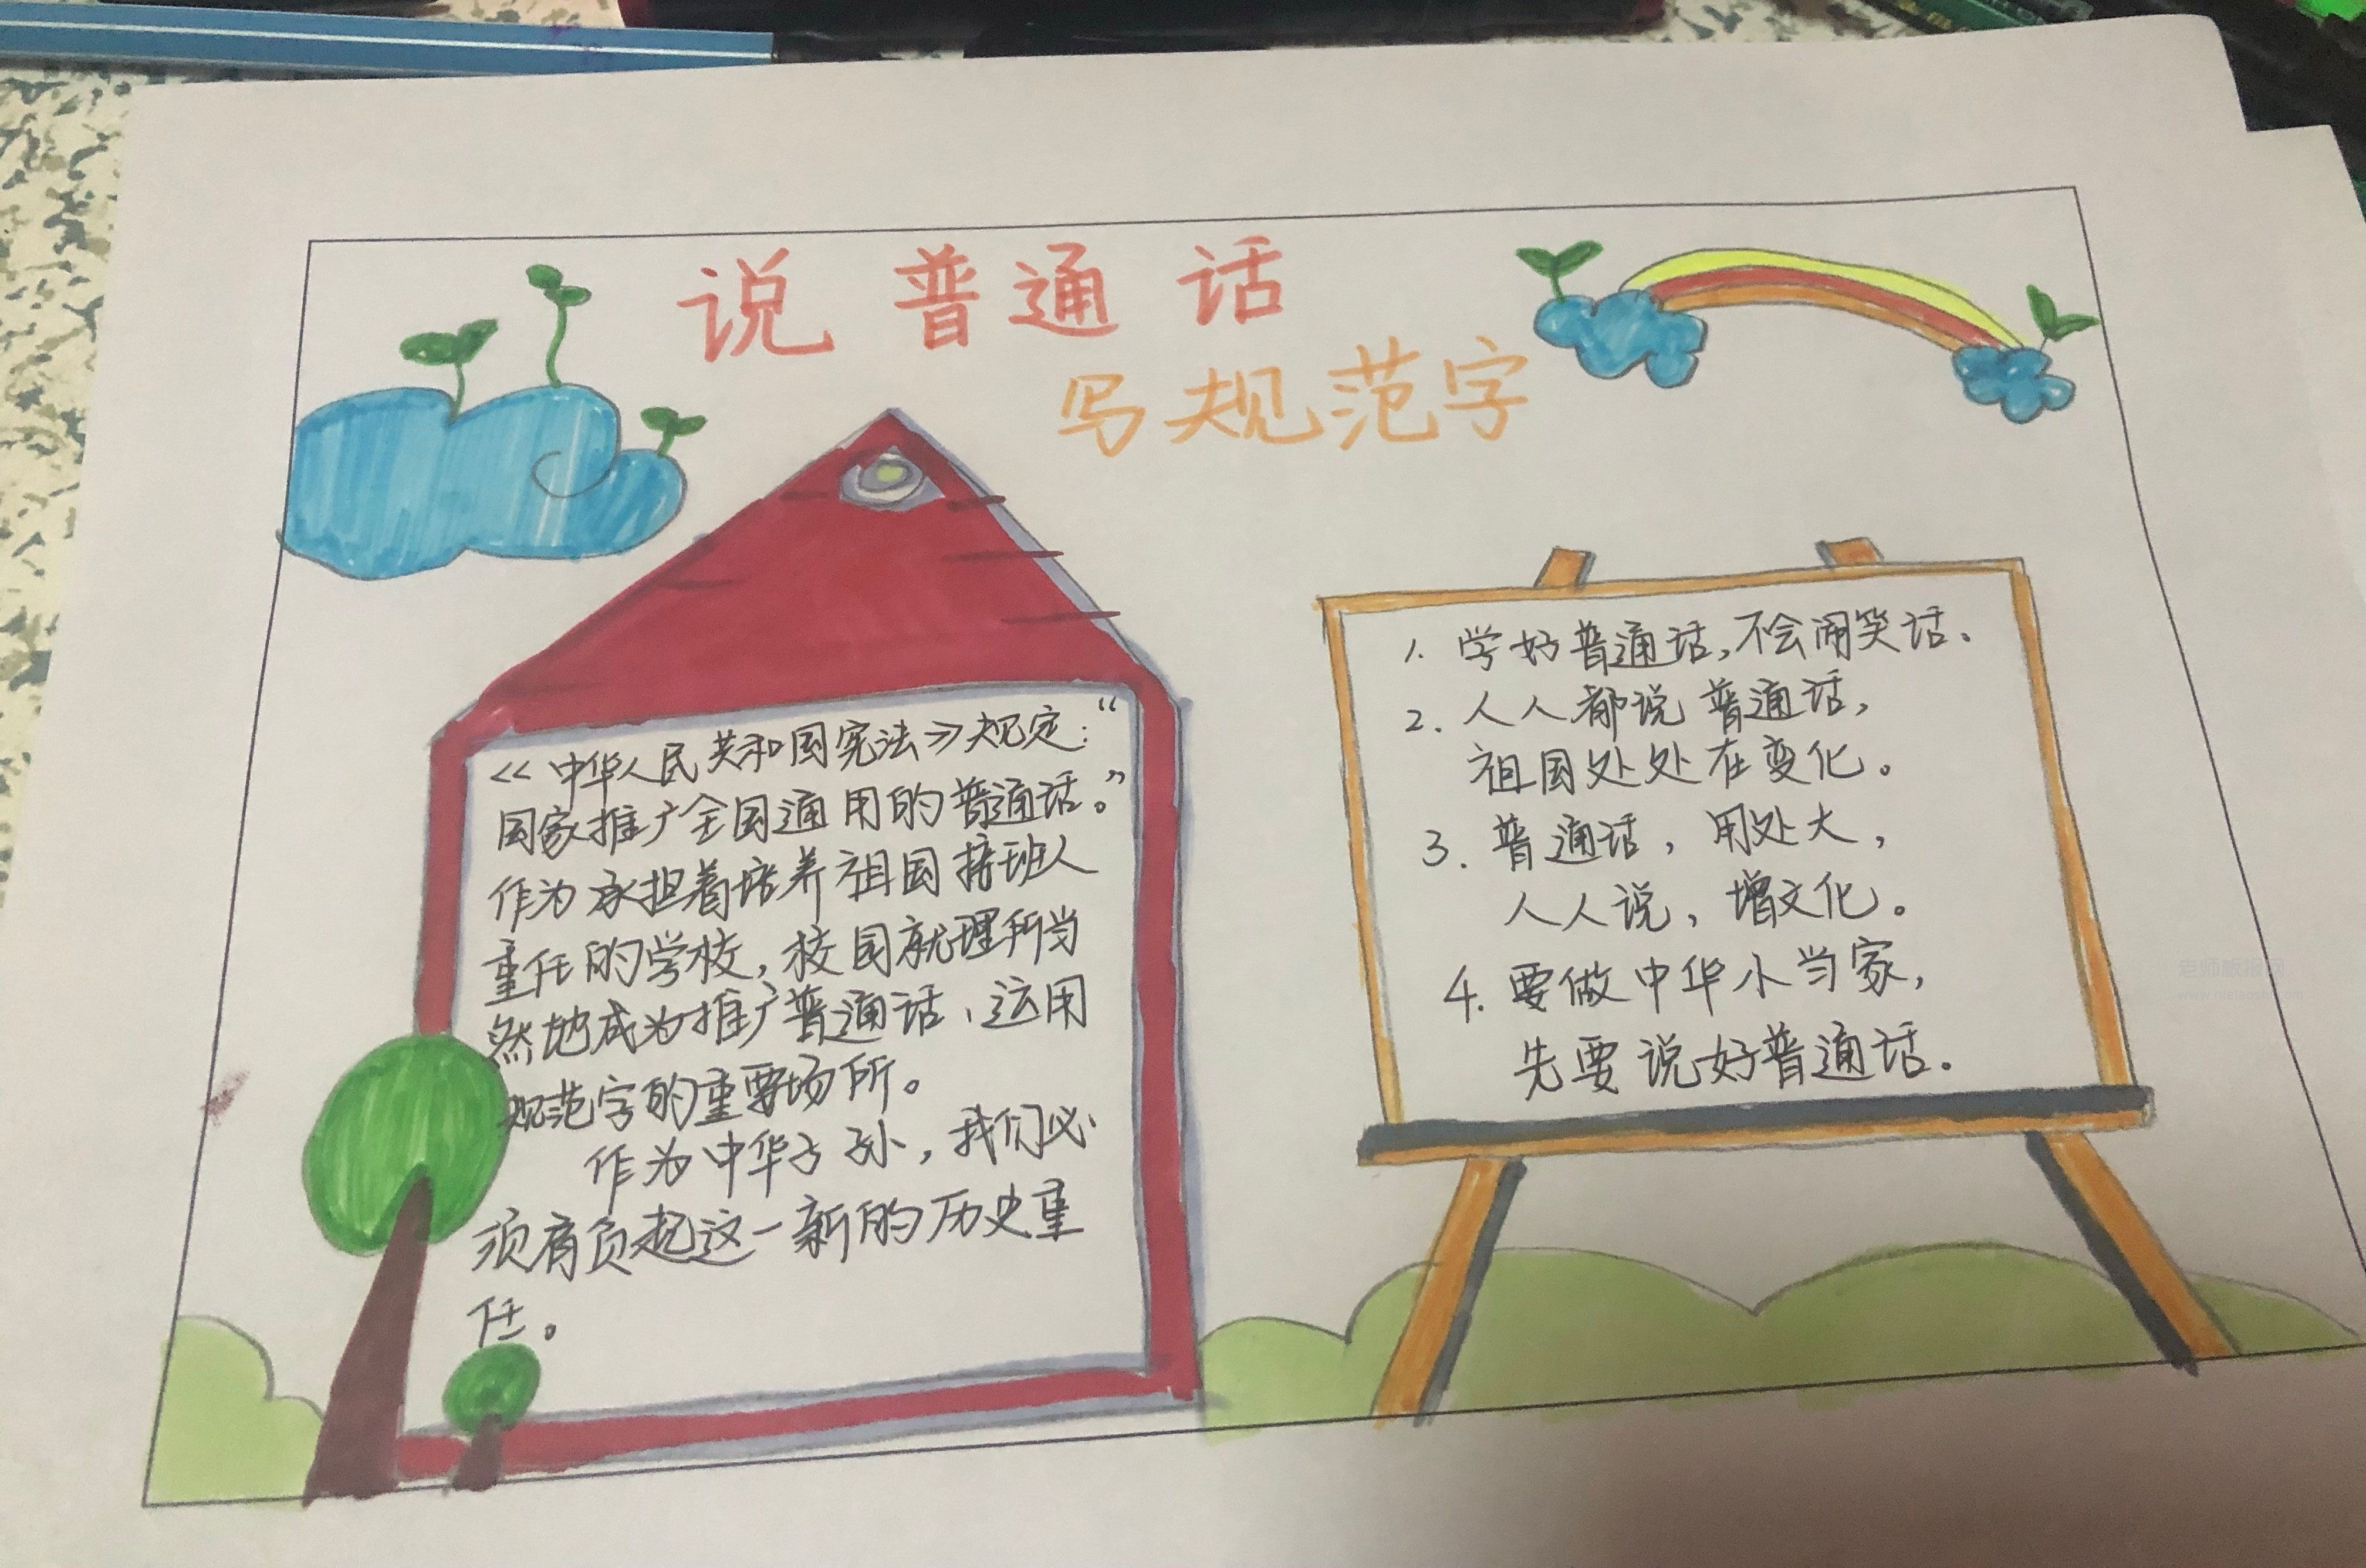 说普通话
写规范字
《中华人民共和国宪法》规定:“
国家推广全国通用的普通话。”
作为承担着培养祖国接班人
重任的学校,校园就理所当
然地成为推广普通话、运用
规范字的重要场所。
作为中华子孙,我们必
须肩负起这一新的历史重
任。
1. 学好普通话,不会闹笑话、
2. 人人都说普通话,
祖国处处在变化。
3. 普通话,用处大,
人人说,增文化。
4. 要做中华小当家,
先要说好普通话.